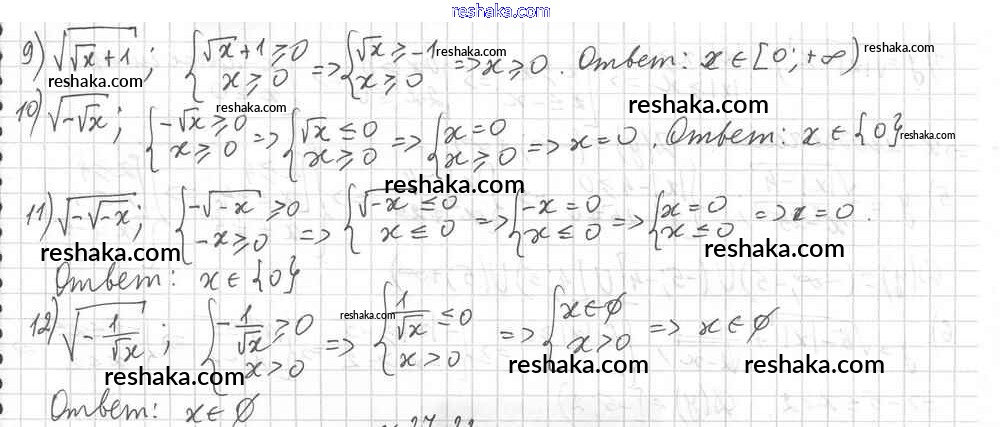 reshaka.com
9) √(√x + 1) ; { √x + 1 ⩾ 0, x ⩾ 0 => { √x ⩾ -1, x ⩾ 0 => x ⩾ 0. Ответ: x ∈ [0; +∞) reshaka.com
reshaka.com reshaka.com
10) √(-√x) ; { -√x ⩾ 0, x ⩾ 0 => { √x ≤ 0, x ⩾ 0 => { x = 0, x ⩾ 0 => x = 0. Ответ: x ∈ {0} reshaka.com
reshaka.com reshaka.com reshaka.com
11) √(-√-x) ; { -√-x ⩾ 0, -x ⩾ 0 => { √-x ≤ 0, x ≤ 0 => { -x = 0, x ≤ 0 => { x = 0, x ≤ 0 => x = 0.
reshaka.com reshaka.com
Ответ: x ∈ {0}
12) √(-1/√x) ; { -1/√x ⩾ 0, x > 0 => { 1/√x ≤ 0, x > 0 => { x ∈ ∅, x > 0 => x ∈ ∅
reshaka.com
reshaka.com reshaka.com reshaka.com
Ответ: x ∈ ∅